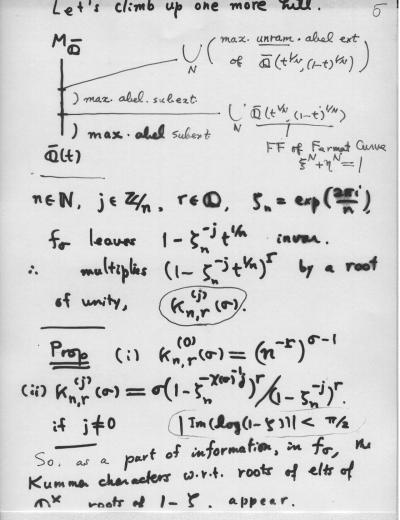 Let's climb up one more hill. 5
M_Q̄
⋃_N ( max. unram. abel ext
of Q̄(t^{1/N}, (1-t)^{1/N}) )
) max. abel. subext
⋃_N Q̄(t^{1/N}, (1-t)^{1/N})
) max. abel subext
FF of Fermat Curve
Q̄(t)
ξ^N + η^N = 1
n∈N, j∈Z/n, r∈Q, ζ_n = exp(2πi/n),
f_σ leaves 1-ζ_n^{-j} t^{1/n} invar.
∴ multiplies (1-ζ_n^{-j} t^{1/n})^r by a root
of unity, K_{n,r}^{(j)}(σ).
Prop (i) K_{n,r}^{(0)}(σ) = (n^{-r})^{σ-1}
(ii) K_{n,r}^{(j)}(σ) = σ(1-ζ_n^{-χ(σ)^{-1}j})^r / (1-ζ_n^{-j})^r.
if j≠0 |Im(log(1-ζ))| < π/2
So, as a part of information, in f_σ, the
Kummer characters w.r.t. roots of elts of
roots of 1-ζ, appear.